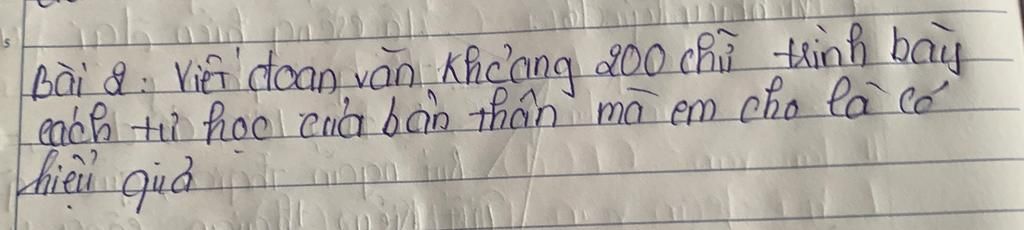 Bài 2: Viết đoạn văn khoảng 200 chữ trình bày
cách tự học của bản thân mà em cho là có
hiệu quả